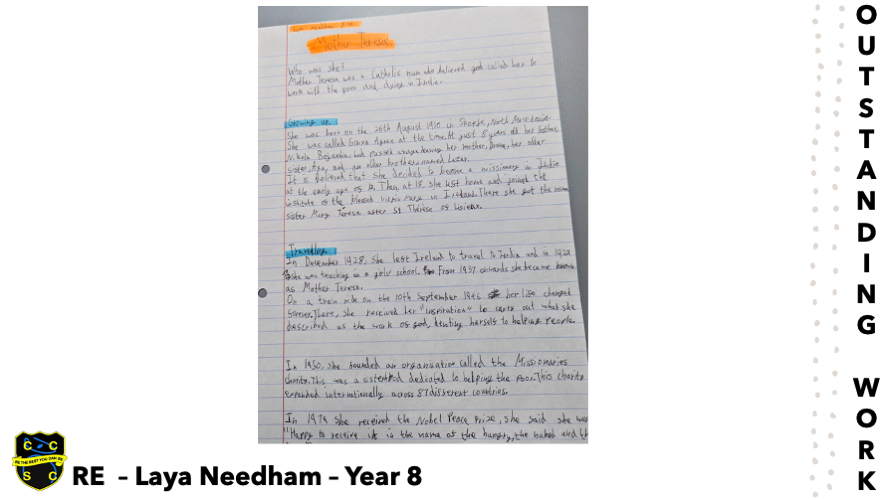 Mother Teresa
Who was she?
Mother Teresa was a Catholic nun who believed god called her to
work with the poor and dying in India.
Growing up
She was born on the 26th August 1910 in Skopje, North Macedonia
She was called Gonxa Agnes at the time. At just 8 years old her father,
Nikola Bojaxhiu, had passed away leaving her mother, her older
sister, Aga, and an older brother named Lazar.
It is believed that she decided to become a missionary in India
at the early age of 12. Then at 18, she left home and joined the
institute of the blessed virgin mary in Ireland. There she got the name
sister Mary Teresa after St Thérèse of Lisieux.
Travelling
In December 1928, she left Ireland to travel to India and in 1929
she was teaching in a girls' school. From 1937 onwards she became known
as Mother Teresa.
On a train ride on the 10th September 1946 her life changed
forever. There, she received her "inspiration" to carry out what she
described as the work of god, devoting herself to helping people
In 1950, she founded an organisation called the Missionaries
charity. This was a dedicated to helping the poor. This charity
expanded internationally across 87 different countries.
In 1979 she received the Nobel Peace Prize, she said she was
"Happy to receive it in the name of the hungry, the naked and th
OUTSTANDING WORK
C C
BE THE BEST YOU CAN BE
S C
RE – Laya Needham – Year 8